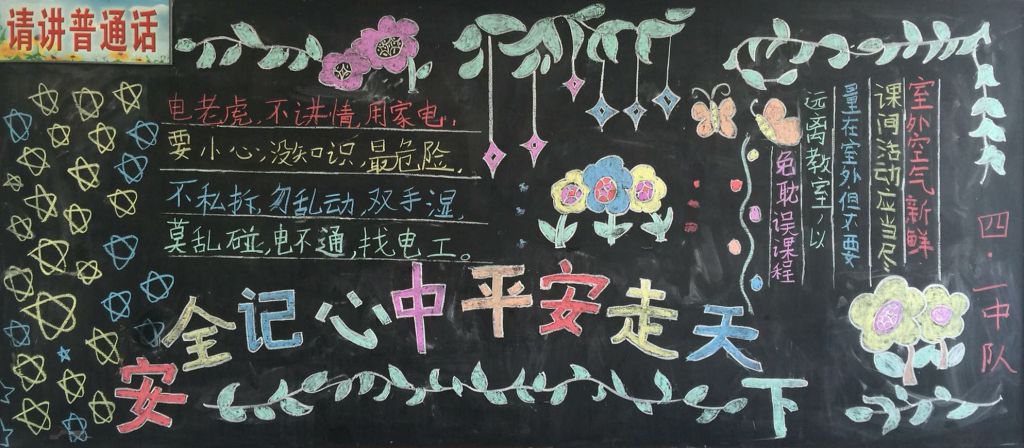 请讲普通话
电老虎,不讲情,用家电,
要小心;没知识,最危险,
不私拆,勿乱动,双手湿,
莫乱碰,电不通,找电工。
安全记心中平安走天下
室外空气新鲜
课间活动应当尽
量在室外但不要
远离教室,以
免耽误课程
四·一中队